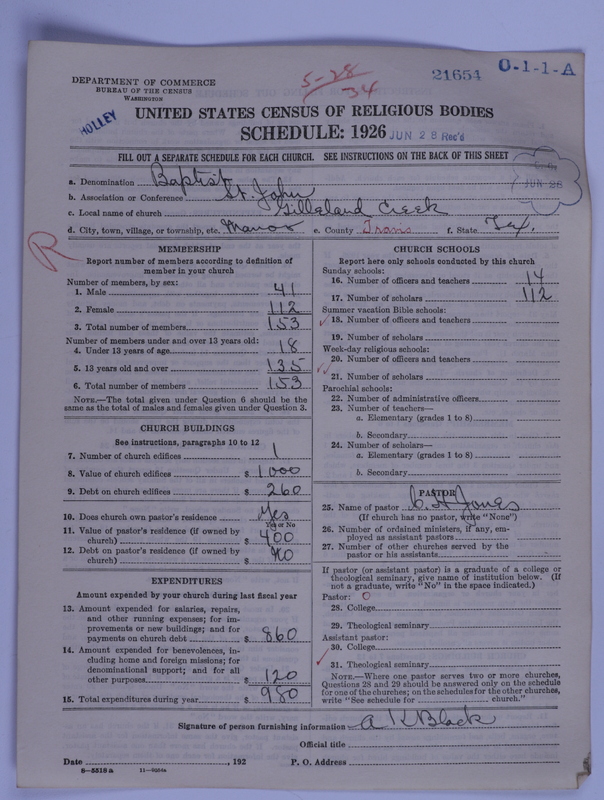 DEPARTMENT OF COMMERCE
BUREAU OF THE CENSUS
WASHINGTON
5-28
34
21654
O-1-1-A
HOLLEY
UNITED STATES CENSUS OF RELIGIOUS BODIES
SCHEDULE: 1926
JUN 28 Rec'd
FILL OUT A SEPARATE SCHEDULE FOR EACH CHURCH. SEE INSTRUCTIONS ON THE BACK OF THIS SHEET
JUN 28
a. Denomination Baptist
b. Association or Conference St. John
c. Local name of church Gilleland Creek
d. City, town, village, or township, etc. Manor e. County Travis f. State Tex.
R
MEMBERSHIP
Report number of members according to definition of
member in your church
Number of members, by sex:
1. Male 41
2. Female 112
3. Total number of members 153
Number of members under and over 13 years old:
4. Under 13 years of age 18
5. 13 years old and over 135
6. Total number of members 153
NOTE.—The total given under Question 6 should be
the same as the total of males and females given under Question 3.
CHURCH BUILDINGS
See instructions, paragraphs 10 to 12
7. Number of church edifices 1
8. Value of church edifices $ 1000
9. Debt on church edifices $ 260
10. Does church own pastor's residence Yes
Yes or No
11. Value of pastor's residence (if owned by
church) $ 400
12. Debt on pastor's residence (if owned by
church) $ No
EXPENDITURES
Amount expended by your church during last fiscal year
13. Amount expended for salaries, repairs,
and other running expenses; for im-
provements or new buildings; and for
payments on church debt $ 860
14. Amount expended for benevolences, in-
cluding home and foreign missions; for
denominational support; and for all
other purposes $ 120
15. Total expenditures during year $ 980
CHURCH SCHOOLS
Report here only schools conducted by this church
Sunday schools:
16. Number of officers and teachers 14
17. Number of scholars 112
Summer vacation Bible schools:
18. Number of officers and teachers
19. Number of scholars
Week-day religious schools:
20. Number of officers and teachers
21. Number of scholars
Parochial schools:
22. Number of administrative officers
23. Number of teachers—
a. Elementary (grades 1 to 8)
b. Secondary
24. Number of scholars—
a. Elementary (grades 1 to 8)
b. Secondary
PASTOR
25. Name of pastor C. H. Jones
(If church has no pastor, write "None")
26. Number of ordained ministers, if any, em-
ployed as assistant pastors
27. Number of other churches served by the
pastor or his assistants
If pastor (or assistant pastor) is a graduate of a college or
theological seminary, give name of institution below. (If
not a graduate, write "No" in the space indicated.)
Pastor: O
28. College
29. Theological seminary
Assistant pastor:
30. College
31. Theological seminary
NOTE.—Where one pastor serves two or more churches,
Questions 28 and 29 should be answered only on the schedule
for one of the churches; on the schedules for the other churches,
write "See schedule for church."
Signature of person furnishing information A K Black
Official title
Date , 192 P. O. Address
8-5518a 11-9034a